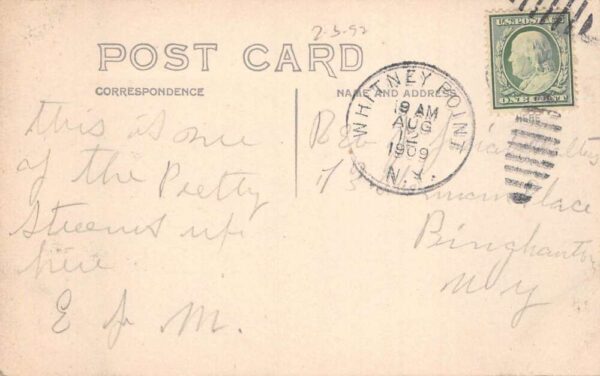 2-3-92
POST CARD
CORRESPONDENCE
NAME AND ADDRESS
U.S. POSTAGE
ONE CENT
WHITNEY POINT
9 AM
AUG
12
1909
N.Y.
This is one
of the Pretty
Streems up
here
E M.
Place
Binghamton
N Y